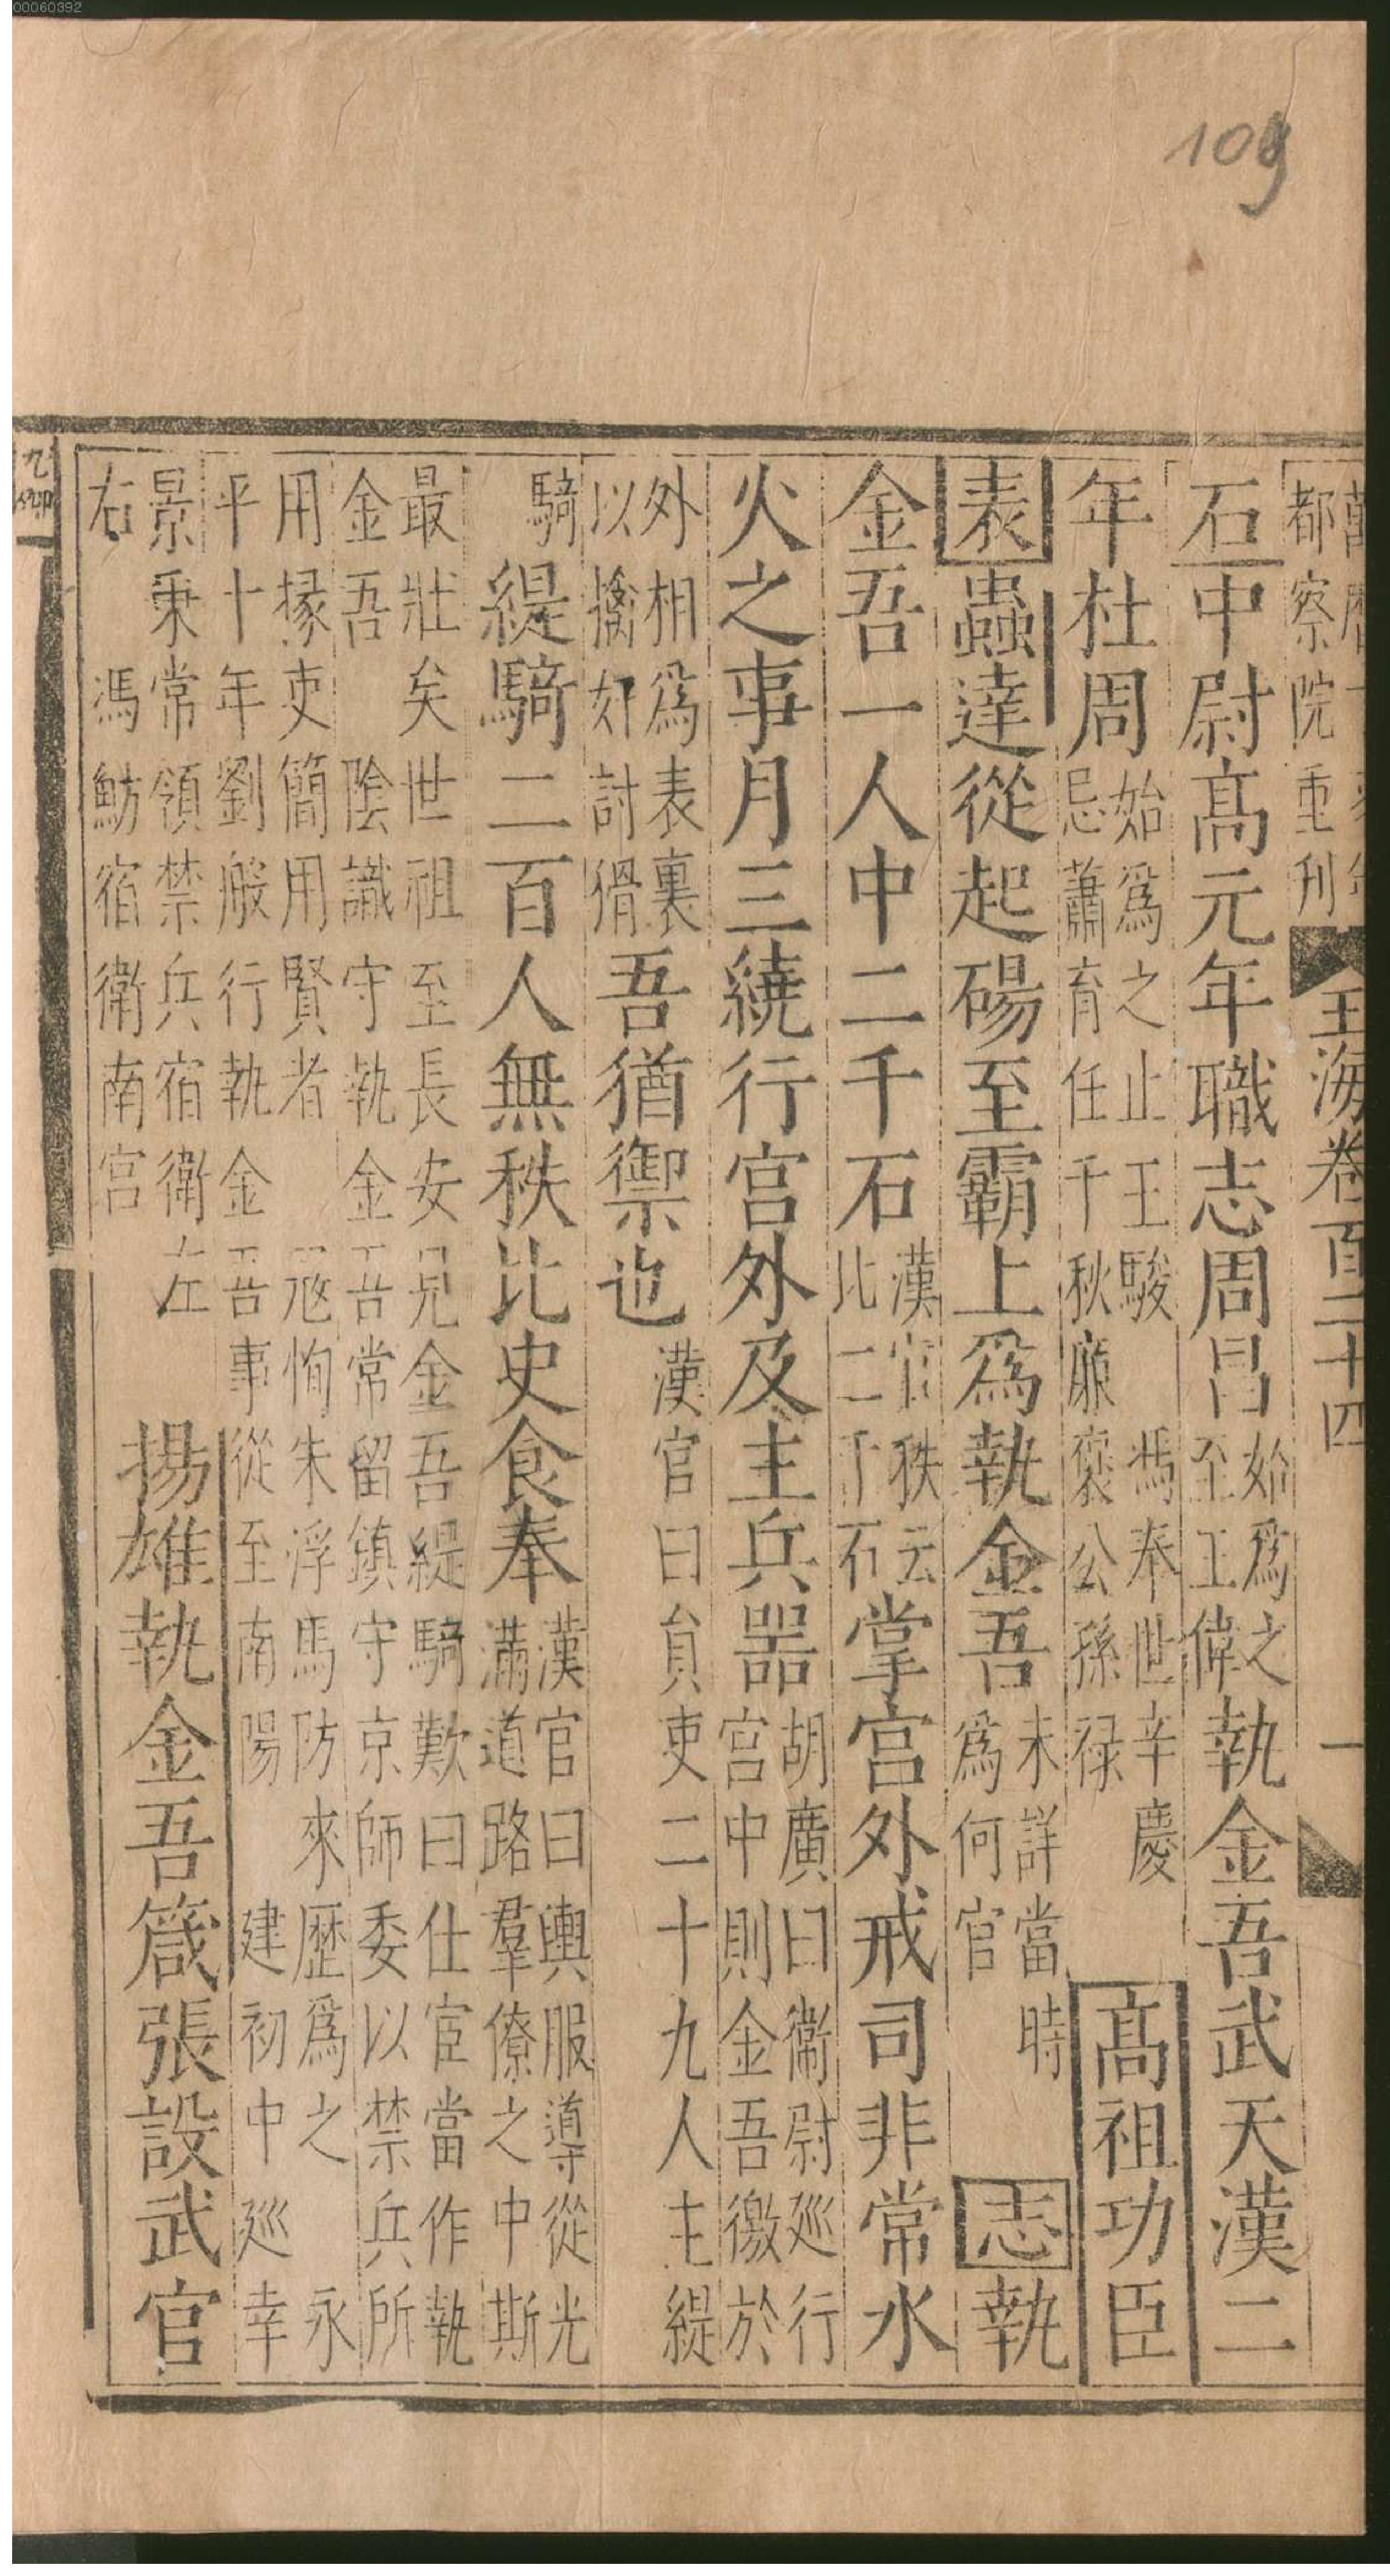 00060392
109
都察院重刊
玉海卷百二十四 一
石中尉高元年職志周昌始爲之至王偉執金吾武天漢二
年杜周始爲之止王駿馮奉世辛慶忌蕭育任千秋廉襃公孫禄高祖功臣
表蟲達從起碭至霸上爲執金吾未詳當時爲何官志執
金吾一人中二千石漢官秩云比二千石掌宫外戒司非常水
火之事月三繞行宫外及主兵器胡廣曰衞尉廵行宫中則金吾徼於
外相爲表裏以擒奸討猾吾猶禦也漢官曰貟吏二十九人主緹
騎緹騎二百人無秩比吏食奉漢官曰輿服導從光滿道路羣僚之中斯
最壯矣世祖至長安見金吾緹騎歎曰仕宦當作執金吾陰識守執金吾常留鎮守京師委以禁兵所
用掾吏簡用賢者寇恂朱浮馬防來歷爲之永平十年劉般行執金吾事從至南陽建初中廵幸
景乗常領禁兵宿衞左右馮魴宿衞南宫揚雄執金吾箴張設武官
九卿一